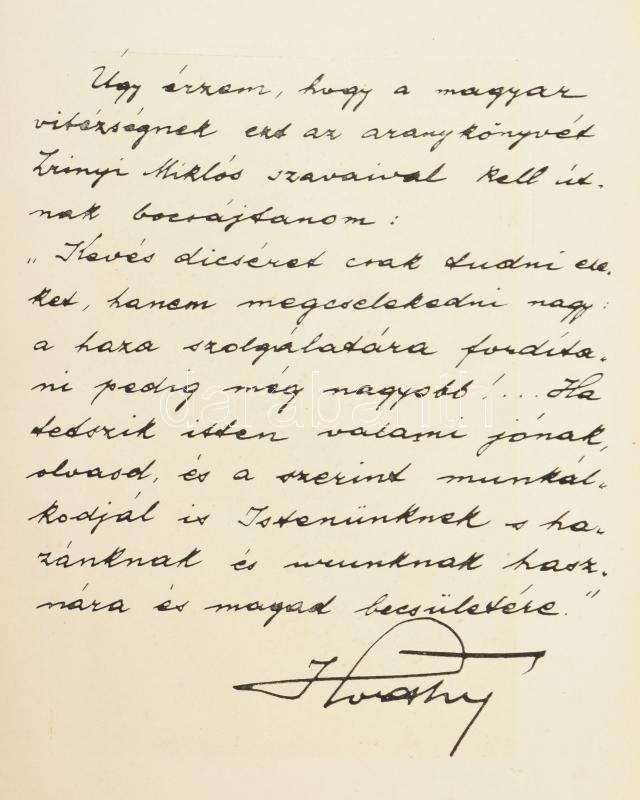 Úgy érzem, hogy a magyar
vitézségnek ezt az aranykönyvét
Zrinyi Miklós szavaival kell út-
nak bocsájtanom:
„Kevés dicséret csak tudni eze-
ket, hanem megcselekedni nagy:
a haza szolgálatára fordíta-
ni pedig még nagyobb!... Ha
tetszik itten valami jónak,
olvasd, és a szerint munkál-
kodjál is Istenünknek s ha-
zánknak és urunknak hasz-
nára és magad becsületére."
Horthy
darabanth